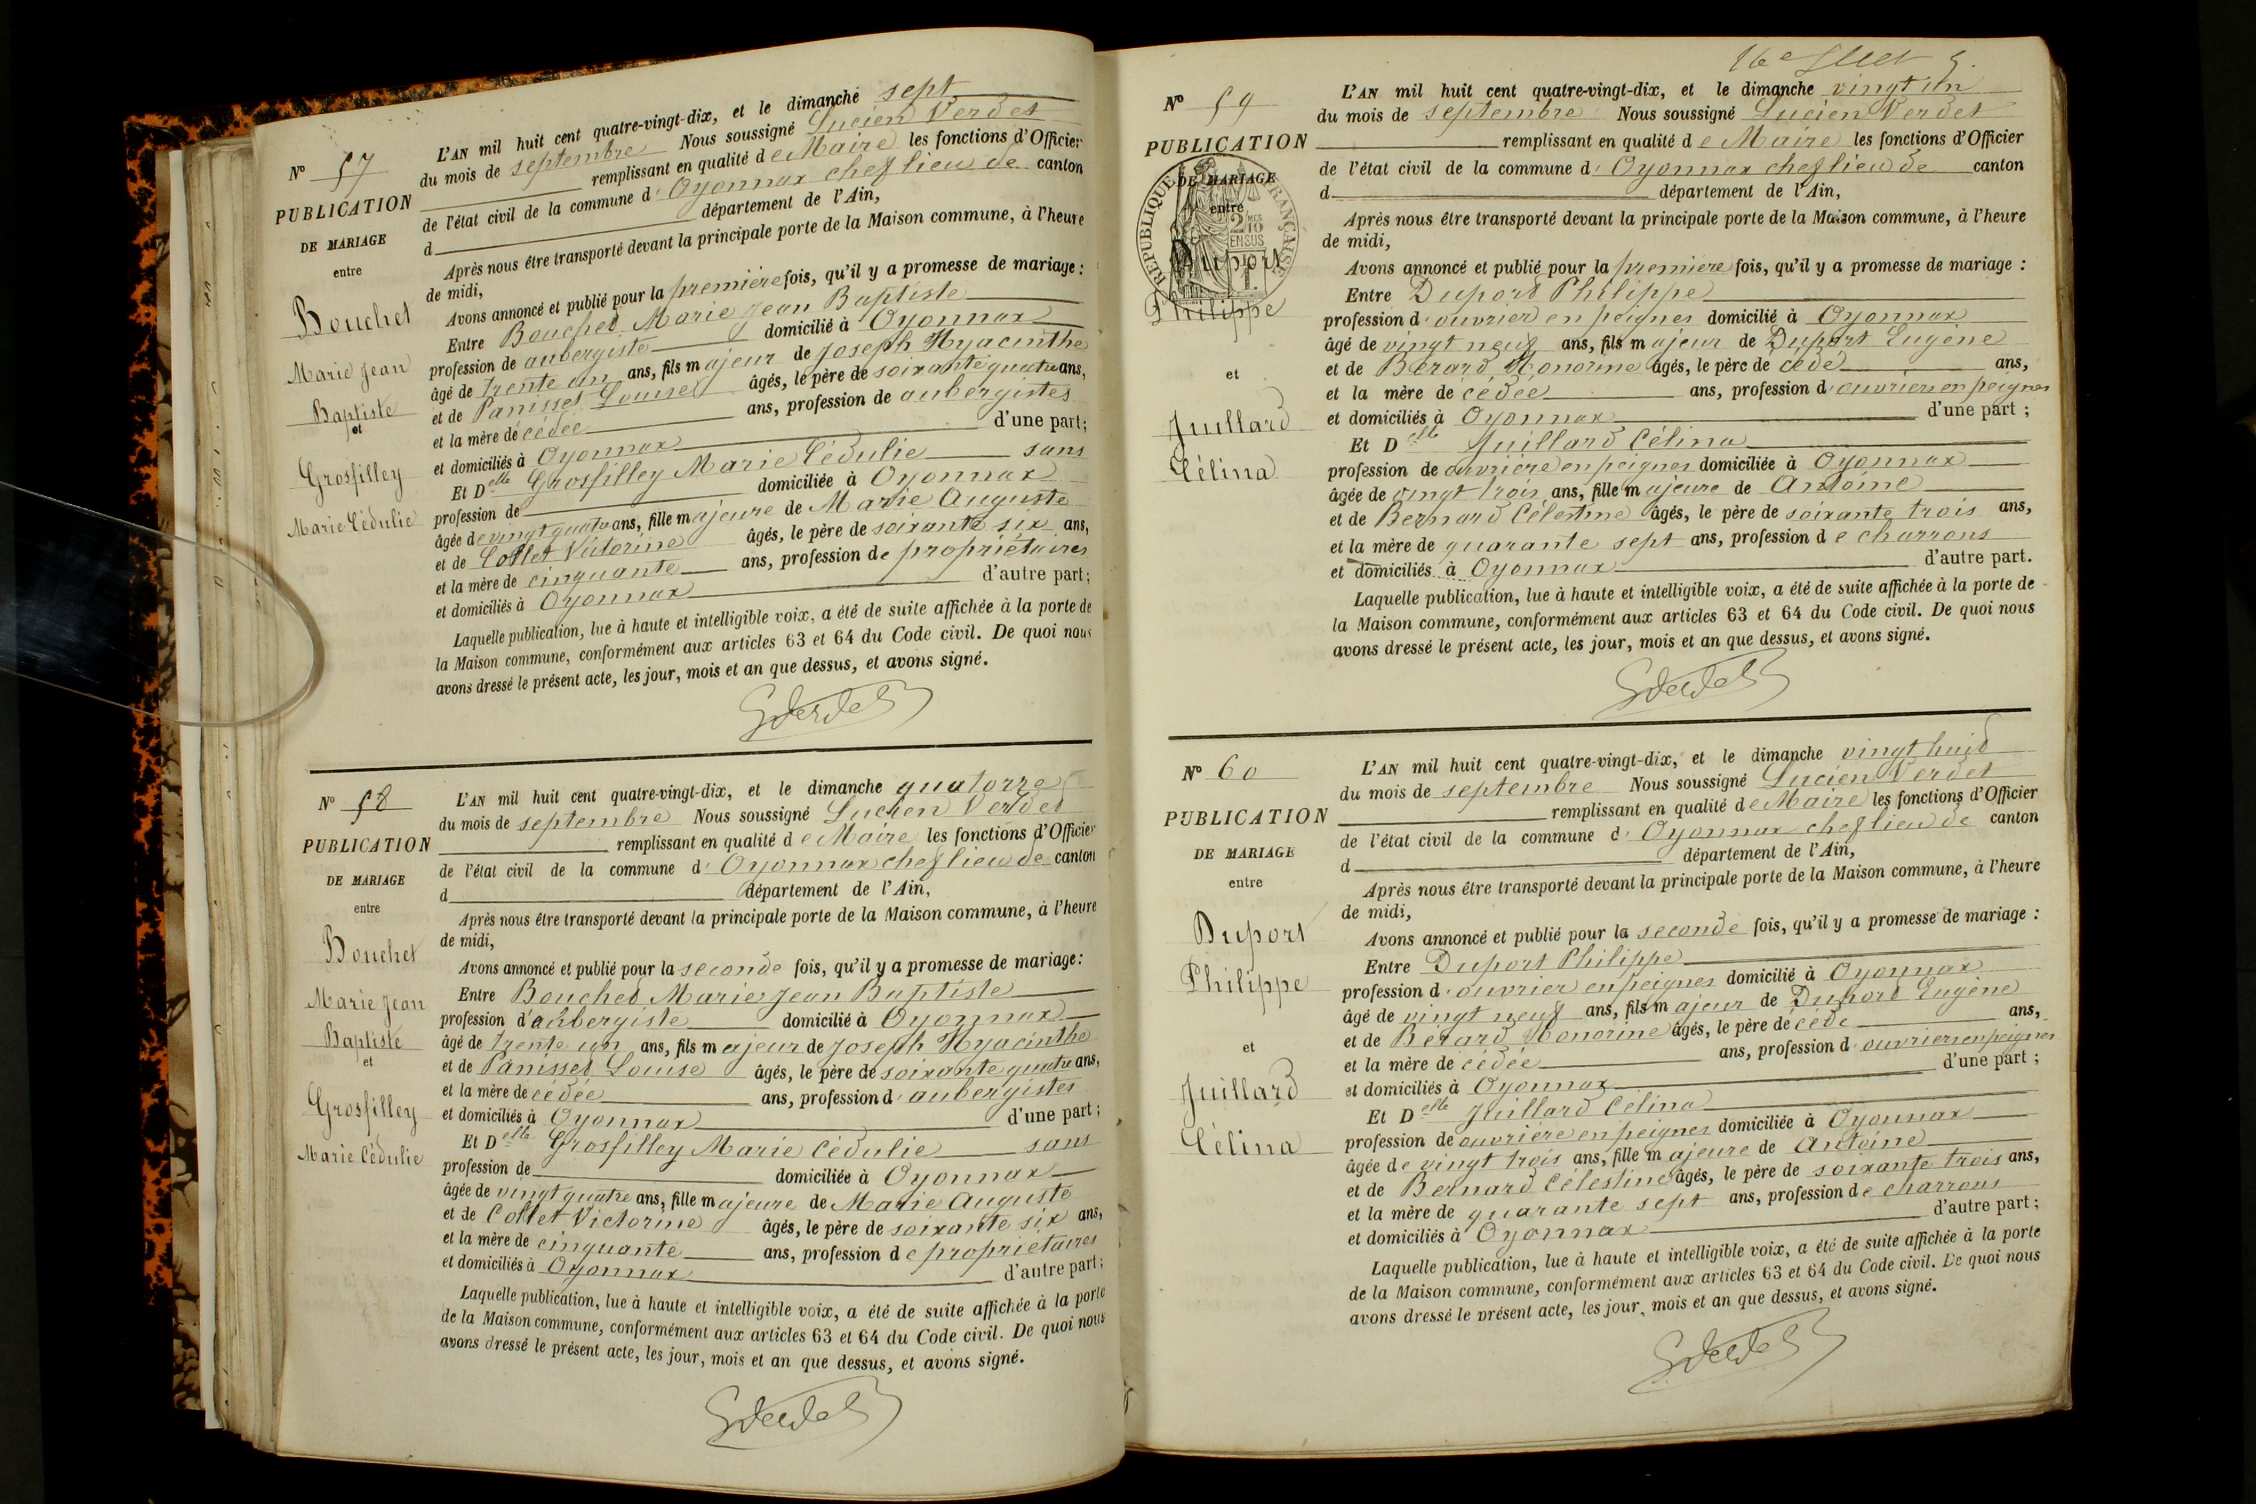 N° 57
PUBLICATION
DE MARIAGE
entre
Bouchet
Marie Jean
Baptiste
et
Grosfilley
Marie Cédulie
L'AN mil huit cent quatre-vingt-dix, et le dimanche sept
du mois de septembre Nous soussigné Lucien Verdet
remplissant en qualité de Maire les fonctions d'Officier
de l'état civil de la commune d'Oyonnax chef lieu de canton
d département de l'Ain,
Après nous être transporté devant la principale porte de la Maison commune, à l'heure
de midi,
Avons annoncé et publié pour la première fois, qu'il y a promesse de mariage :
Entre Bouchet Marie Jean Baptiste
profession de aubergiste domicilié à Oyonnax
âgé de trente un ans, fils majeur de Joseph Hyacinthe
et de Panisset Louise âgés, le père de soixante quatre ans,
et la mère décédée ans, profession de aubergistes
et domiciliés à Oyonnax d'une part;
Et Delle Grosfilley Marie Cédulie sans
profession de domiciliée à Oyonnax
âgée de vingt quatre ans, fille majeure de Marie Auguste
et de Collet Victorine âgés, le père de soixante six ans,
et la mère de cinquante ans, profession de propriétaires
et domiciliés à Oyonnax d'autre part;
Laquelle publication, lue à haute et intelligible voix, a été de suite affichée à la porte de
la Maison commune, conformément aux articles 63 et 64 du Code civil. De quoi nous
avons dressé le présent acte, les jour, mois et an que dessus, et avons signé.
N° 58
PUBLICATION
DE MARIAGE
entre
Bouchet
Marie Jean
Baptiste
et
Grosfilley
Marie Cédulie
L'AN mil huit cent quatre-vingt-dix, et le dimanche quatorze
du mois de septembre Nous soussigné Lucien Verdet
remplissant en qualité de Maire les fonctions d'Officier
de l'état civil de la commune d'Oyonnax chef lieu de canton
d département de l'Ain,
Après nous être transporté devant la principale porte de la Maison commune, à l'heure
de midi,
Avons annoncé et publié pour la seconde fois, qu'il y a promesse de mariage :
Entre Bouchet Marie Jean Baptiste
profession d'aubergiste domicilié à Oyonnax
âgé de trente un ans, fils majeur de Joseph Hyacinthe
et de Panisset Louise âgés, le père de soixante quatre ans,
et la mère décédée ans, profession d'aubergistes
et domiciliés à Oyonnax d'une part;
Et Delle Grosfilley Marie Cédulie sans
profession de domiciliée à Oyonnax
âgée de vingt quatre ans, fille majeure de Marie Auguste
et de Collet Victorine âgés, le père de soixante six ans,
et la mère de cinquante ans, profession de propriétaires
et domiciliés à Oyonnax d'autre part;
Laquelle publication, lue à haute et intelligible voix, a été de suite affichée à la porte
de la Maison commune, conformément aux articles 63 et 64 du Code civil. De quoi nous
avons dressé le présent acte, les jour, mois et an que dessus, et avons signé.
16e
N° 59
PUBLICATION
DE MARIAGE
entre
RÉPUBLIQUE FRANÇAISE
2/10 EN SUS
Duport
Philippe
et
Juillard
Célina
L'AN mil huit cent quatre-vingt-dix, et le dimanche vingt un
du mois de septembre Nous soussigné Lucien Verdet
remplissant en qualité de Maire les fonctions d'Officier
de l'état civil de la commune d'Oyonnax chef lieu de canton
d département de l'Ain,
Après nous être transporté devant la principale porte de la Maison commune, à l'heure
de midi,
Avons annoncé et publié pour la première fois, qu'il y a promesse de mariage :
Entre Duport Philippe
profession d'ouvrier en peignes domicilié à Oyonnax
âgé de vingt neuf ans, fils majeur de Duport Eugène
et de Bérard Honorine âgés, le père décédé ans,
et la mère décédée ans, profession d'ouvriers en peignes
et domiciliés à Oyonnax d'une part ;
Et Delle Juillard Célina
profession de ouvrière en peignes domiciliée à Oyonnax
âgée de vingt trois ans, fille majeure de Antoine
et de Bernard Célestine âgés, le père de soixante trois ans,
et la mère de quarante sept ans, profession de charrons
et domiciliés à Oyonnax d'autre part.
Laquelle publication, lue à haute et intelligible voix, a été de suite affichée à la porte de
la Maison commune, conformément aux articles 63 et 64 du Code civil. De quoi nous
avons dressé le présent acte, les jour, mois et an que dessus, et avons signé.
N° 60
PUBLICATION
DE MARIAGE
entre
Duport
Philippe
et
Juillard
Célina
L'AN mil huit cent quatre-vingt-dix, et le dimanche vingt huit
du mois de septembre Nous soussigné Lucien Verdet
remplissant en qualité de Maire les fonctions d'Officier
de l'état civil de la commune d'Oyonnax chef lieu de canton
d département de l'Ain,
Après nous être transporté devant la principale porte de la Maison commune, à l'heure
de midi,
Avons annoncé et publié pour la seconde fois, qu'il y a promesse de mariage :
Entre Duport Philippe
profession d'ouvrier en peignes domicilié à Oyonnax
âgé de vingt neuf ans, fils majeur de Duport Eugène
et de Bérard Honorine âgés, le père décédé ans,
et la mère décédée ans, profession d'ouvriers en peignes
et domiciliés à Oyonnax d'une part ;
Et Delle Juillard Célina
profession de ouvrière en peignes domiciliée à Oyonnax
âgée de vingt trois ans, fille majeure de Antoine
et de Bernard Célestine âgés, le père de soixante trois ans,
et la mère de quarante sept ans, profession de charrons
et domiciliés à Oyonnax d'autre part;
Laquelle publication, lue à haute et intelligible voix, a été de suite affichée à la porte
de la Maison commune, conformément aux articles 63 et 64 du Code civil. De quoi nous
avons dressé le présent acte, les jour, mois et an que dessus, et avons signé.